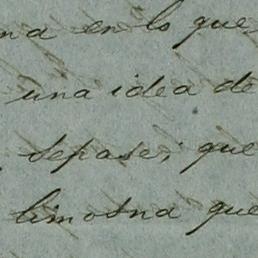 na en lo que
una idea de
sepase; que
limosna que